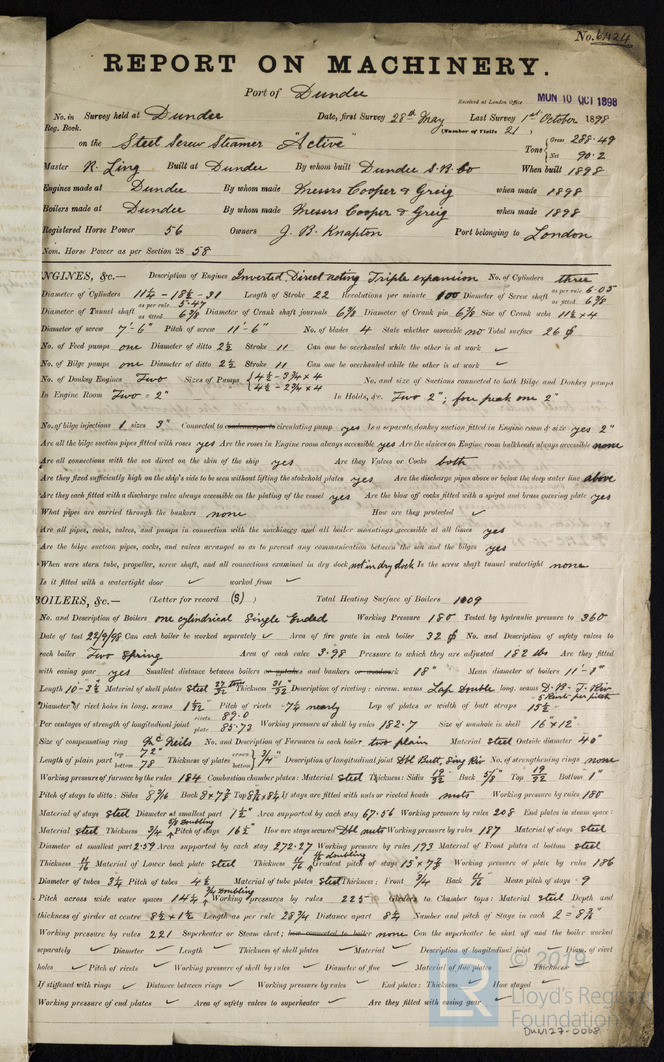 No. 6424
REPORT ON MACHINERY.
Port of Dundee
Received at London Office MON 10 OCT 1898
No. in Survey held at Dundee Date, first Survey 28th May Last Survey 1st October 1898
Reg. Book. (Number of Visits 21)
on the Steel Screw Steamer "Active" Tons { Gross 288.49 Net 90.2
Master R. Ling Built at Dundee By whom built Dundee S.B. Co When built 1898
Engines made at Dundee By whom made Messrs Cooper & Greig when made 1898
Boilers made at Dundee By whom made Messrs Cooper & Greig when made 1898
Registered Horse Power 56 Owners J. B. Knapton Port belonging to London
Nom. Horse Power as per Section 28 58
NGINES, &c.— Description of Engines Inverted Direct acting Triple expansion No. of Cylinders three
Diameter of Cylinders 11¼ - 18½ - 31 Length of Stroke 22 Revolutions per minute 100 Diameter of Screw shaft as per rule 6.05 as fitted 6⅜
Diameter of Tunnel shaft as per rule 5.47 as fitted 6⅜ Diameter of Crank shaft journals 6⅜ Diameter of Crank pin 6⅜ Size of Crank webs 11½ x 4
Diameter of screw 7'-6" Pitch of screw 11'-6" No. of blades 4 State whether moveable no Total surface 26 ft
No. of Feed pumps one Diameter of ditto 2½ Stroke 11 Can one be overhauled while the other is at work ✓
No. of Bilge pumps one Diameter of ditto 2½ Stroke 11 Can one be overhauled while the other is at work ✓
No. of Donkey Engines Two Sizes of Pumps { 4½ - 3¾ x 4 4½ - 2¾ x 4 No. and size of Suctions connected to both Bilge and Donkey pumps
In Engine Room Two = 2" In Holds, &c. Two 2"; fore peak one 2"
No. of bilge injections 1 sizes 3" Connected to circulating pump yes Is a separate donkey suction fitted in Engine room & size yes 2"
Are all the bilge suction pipes fitted with roses yes Are the roses in Engine room always accessible yes Are the sluices on Engine room bulkheads always accessible none
Are all connections with the sea direct on the skin of the ship yes Are they Valves or Cocks both
Are they fixed sufficiently high on the ship's side to be seen without lifting the stokehold plates yes Are the discharge pipes above or below the deep water line above
Are they each fitted with a discharge valve always accessible on the plating of the vessel yes Are the blow off cocks fitted with a spigot and brass covering plate yes
What pipes are carried through the bunkers none How are they protected ✓
Are all pipes, cocks, valves, and pumps in connection with the machinery and all boiler mountings accessible at all times yes
Are the bilge suction pipes, cocks, and valves arranged so as to prevent any communication between the sea and the bilges yes
When were stern tube, propeller, screw shaft, and all connections examined in dry dock not in dry dock Is the screw shaft tunnel watertight none
Is it fitted with a watertight door ✓ worked from ✓
BOILERS, &c.— (Letter for record (S)) Total Heating Surface of Boilers 1009
No. and Description of Boilers one cylindrical Single Ended Working Pressure 180 Tested by hydraulic pressure to 360
Date of test 22/9/98 Can each boiler be worked separately ✓ Area of fire grate in each boiler 32 ft No. and Description of safety valves to
each boiler Two Spring Area of each valve 3.98 Pressure to which they are adjusted 182 lbs Are they fitted
with easing gear yes Smallest distance between boilers or uptakes and bunkers or woodwork 18" Mean diameter of boilers 11'-1"
Length 10-3½ Material of shell plates steel Thickness 31/32" Description of riveting: circum. seams Lap Double long. seams D.B. T. Riv 5 Rivets per pitch
Diameter of rivet holes in long. seams 1½" Pitch of rivets 7½ nearly Lap of plates or width of butt straps 15½
Per centages of strength of longitudinal joint rivets 89.0 plate 85.73 Working pressure of shell by rules 182.7 Size of manhole in shell 16" x 12"
Size of compensating ring McNeils No. and Description of Furnaces in each boiler two plain Material steel Outside diameter 40"
Length of plain part top 72" bottom 78 Thickness of plates crown bottom } ¾" Description of longitudinal joint Dbl Butt, Sing Riv No. of strengthening rings none
Working pressure of furnace by the rules 184 Combustion chamber plates: Material steel Thickness: Sides 19/32 Back 5/8" Top 19/32 Bottom 1"
Pitch of stays to ditto: Sides Back 8 x 7⅞ Top If stays are fitted with nuts or riveted heads nuts Working pressure by rules 180
Material of stays steel Diameter at smallest part 1½" Area supported by each stay 67.56 Working pressure by rules 208 End plates in steam space:
Material steel Thickness ¾ Pitch of stays 16½" How are stays secured Dbl nuts Working pressure by rules 187 Material of stays steel
Diameter at smallest part 2.59 Area supported by each stay 272.27 Working pressure by rules 193 Material of Front plates at bottom steel
Thickness 11/16 Material of Lower back plate steel Thickness 11/16 doubling Greatest pitch of stays 15" x 7⅞ Working pressure of plate by rules 186
Diameter of tubes 3¼ Pitch of tubes 4½ Material of tube plates steel Thickness: Front ¾ Back 11/16 Mean pitch of stays 9
Pitch across wide water spaces 14½ doubling Working pressures by rules 225 Girders to Chamber tops: Material steel Depth and
thickness of girder at centre 8½ x 1½ Length as per rule 28¾ Distance apart 8¼ Number and pitch of Stays in each 2 = 8⅞"
Working pressure by rules 221 Superheater or Steam chest; how connected to boiler none Can the superheater be shut off and the boiler worked
separately ✓ Diameter ✓ Length ✓ Thickness of shell plates ✓ Material ✓ Description of longitudinal joint ✓ Diam. of rivet
holes ✓ Pitch of rivets ✓ Working pressure of shell by rules ✓ Diameter of flue ✓ Material of flue plates ✓ Thickness ✓
If stiffened with rings ✓ Distance between rings ✓ Working pressure by rules ✓ End plates: Thickness ✓ How stayed ✓
Working pressure of end plates ✓ Area of safety valves to superheater ✓ Are they fitted with easing gear ✓
LR © 2019
Lloyd's Register
Foundation
DUN127-0068